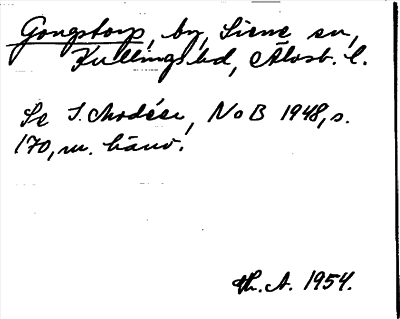 Gongstorp, by, Siene sn,
Kullings hd, Älvsb. l.
Se I. Modéer, NoB 1948, s.
170, m. hänv.
Th. A. 1954.